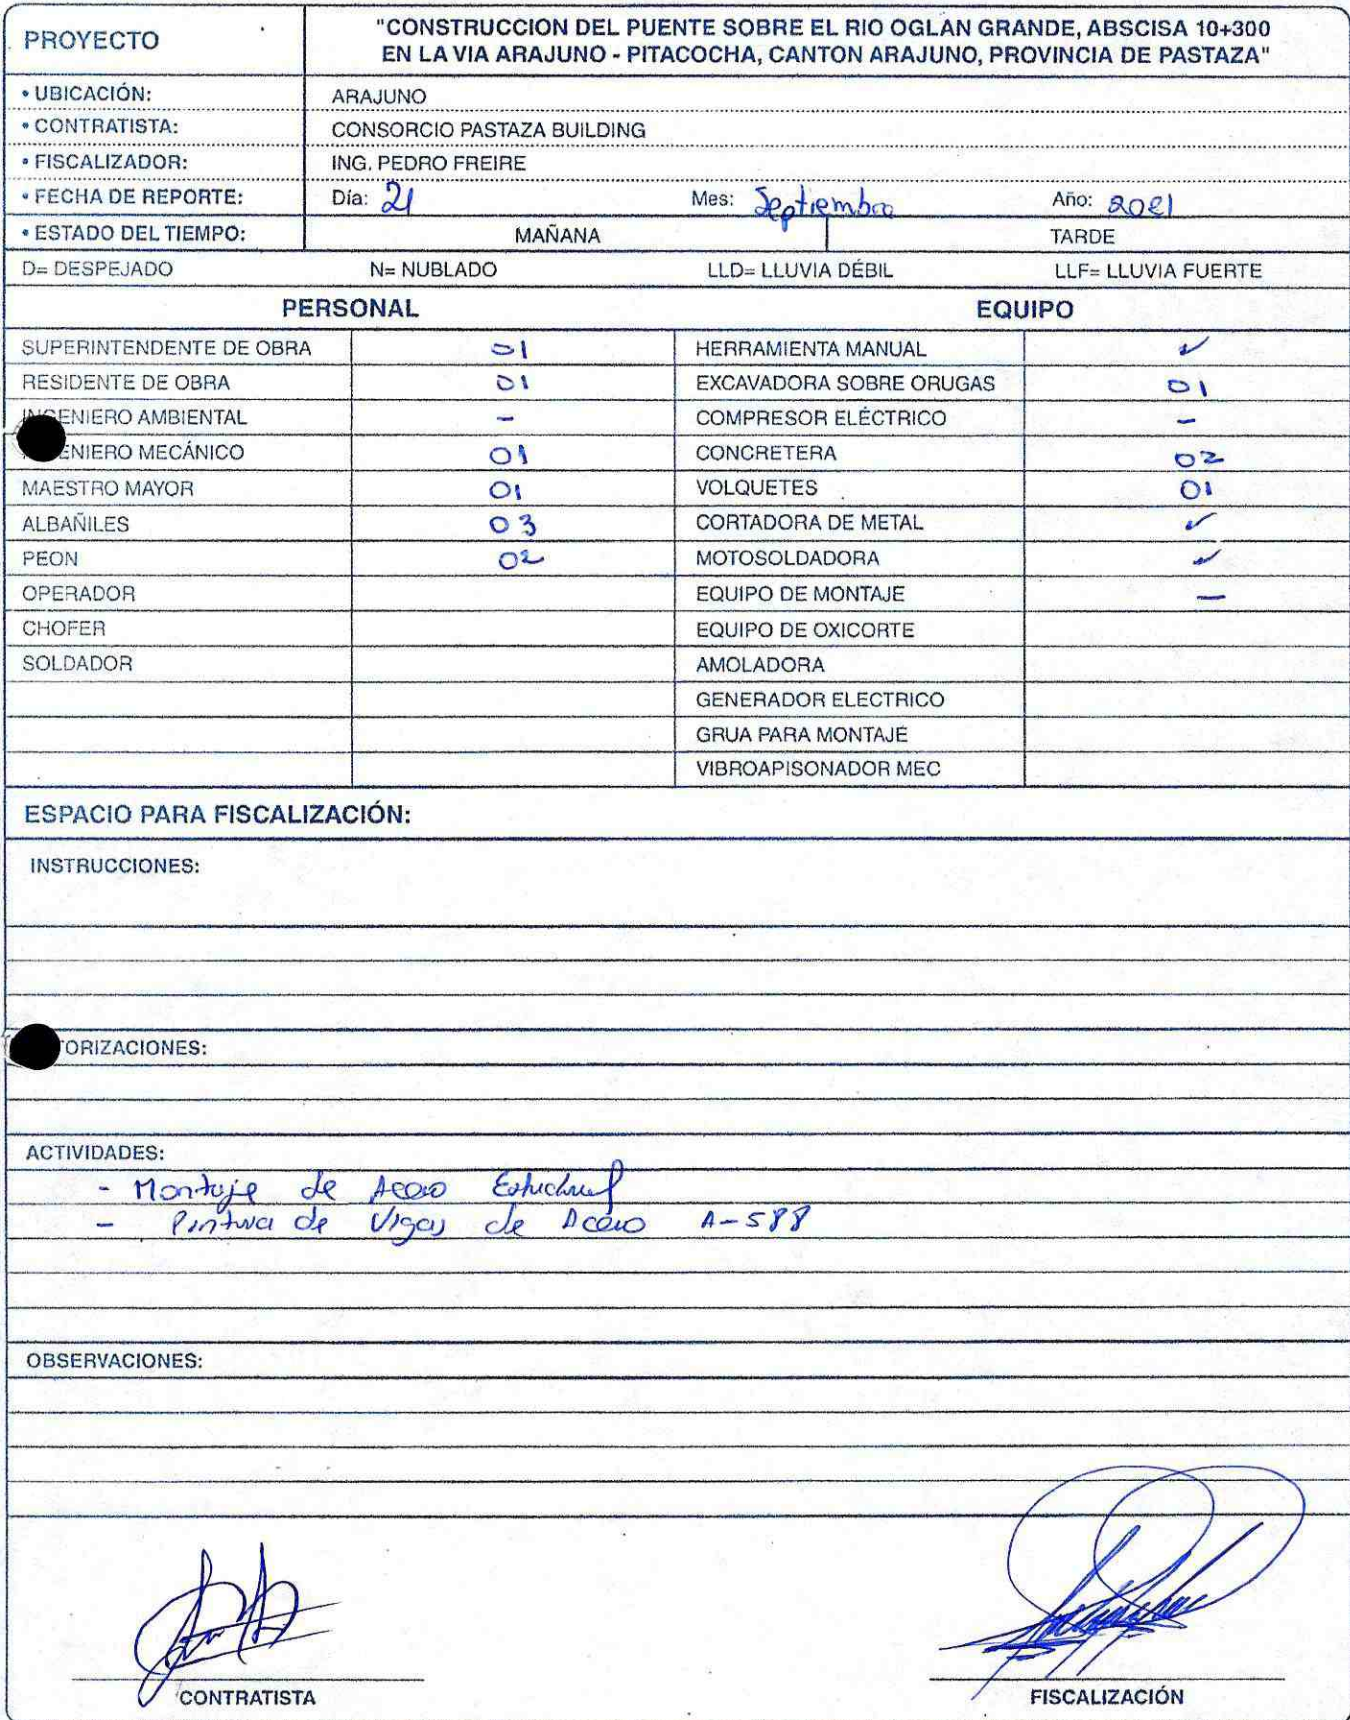 PROYECTO
"CONSTRUCCION DEL PUENTE SOBRE EL RIO OGLAN GRANDE, ABSCISA 10+300
EN LA VIA ARAJUNO - PITACOCHA, CANTON ARAJUNO, PROVINCIA DE PASTAZA"
• UBICACIÓN: ARAJUNO
• CONTRATISTA: CONSORCIO PASTAZA BUILDING
• FISCALIZADOR: ING. PEDRO FREIRE
• FECHA DE REPORTE: Día: 21 Mes: Septiembre Año: 2021
• ESTADO DEL TIEMPO: MAÑANA TARDE
D= DESPEJADO N= NUBLADO LLD= LLUVIA DÉBIL LLF= LLUVIA FUERTE
PERSONAL EQUIPO
SUPERINTENDENTE DE OBRA 01 HERRAMIENTA MANUAL ✓
RESIDENTE DE OBRA 01 EXCAVADORA SOBRE ORUGAS 01
INGENIERO AMBIENTAL - COMPRESOR ELÉCTRICO -
ENIERO MECÁNICO 01 CONCRETERA 02
MAESTRO MAYOR 01 VOLQUETES 01
ALBAÑILES 03 CORTADORA DE METAL ✓
PEON 02 MOTOSOLDADORA ✓
OPERADOR EQUIPO DE MONTAJE -
CHOFER EQUIPO DE OXICORTE
SOLDADOR AMOLADORA
GENERADOR ELECTRICO
GRUA PARA MONTAJE
VIBROAPISONADOR MEC
ESPACIO PARA FISCALIZACIÓN:
INSTRUCCIONES:
TORIZACIONES:
ACTIVIDADES:
- Montaje de Acero Estructural
- Pintura de Vigas de Acero A-588
OBSERVACIONES:
CONTRATISTA FISCALIZACIÓN